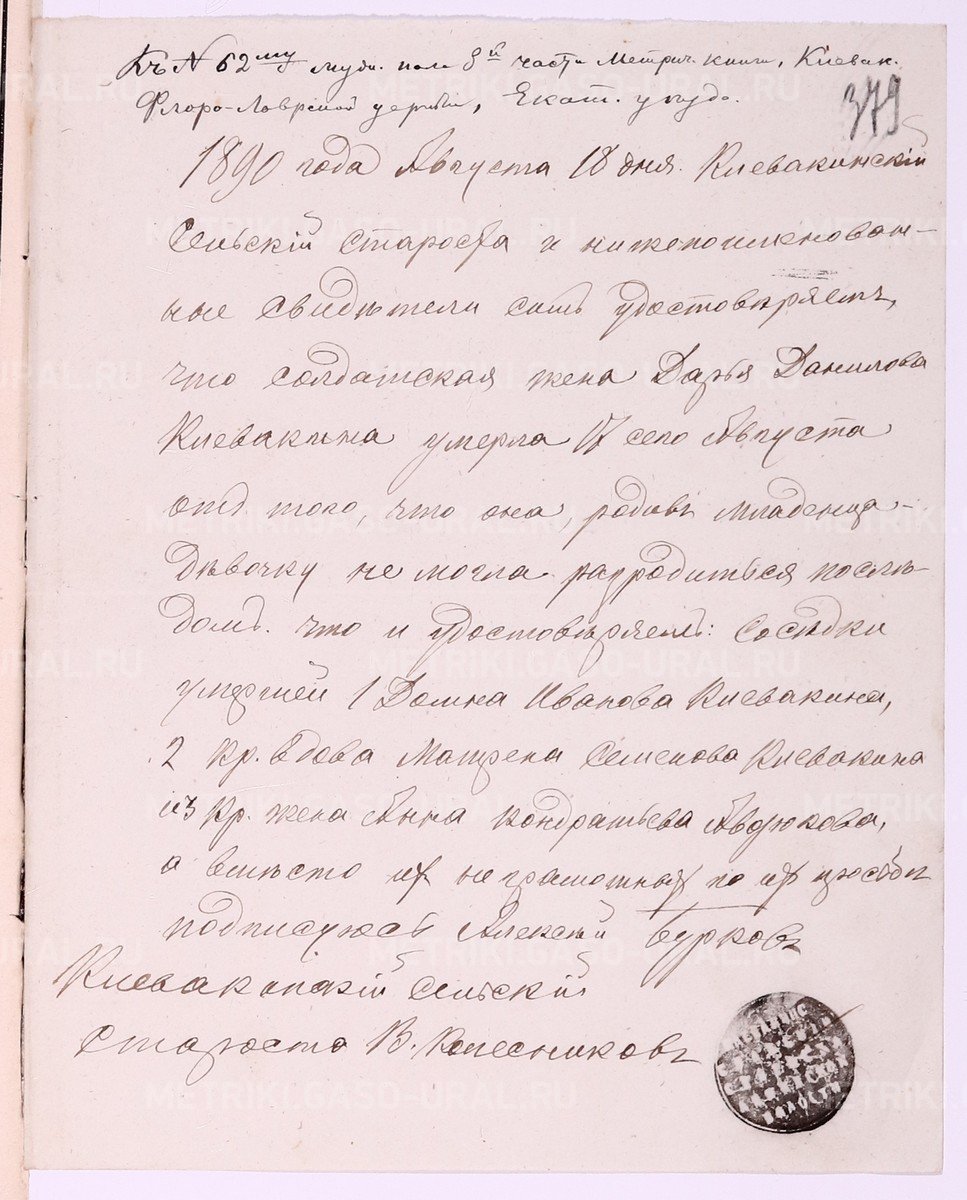 Къ № 62му муж. пола 3й части Метрич. книги, Киевак.
Флоро-Лаврской церкви, Екат. уезда.
379
1890 года Августа 18 дня. Киевакинскій
Сельскій староста и нижепоименован-
ные свидѣтели симъ удостовѣряемъ,
что солдатская жена Дарья Данилова
Киевакина умерла 17 сего Августа
отъ того, что она, родивъ младенца-
дѣвочку не могла разродиться послѣ-
домъ. что и удостовѣряемъ: Сосѣдки
умершей 1 Домна Иванова Киевакина,
2 Кр. вдова Матрена Семенова Киевакина
и 3 Кр. жена Анна Кондратьева Авдюкова,
а вмѣсто их неграмотных по их прозьбѣ
подписуюсь Алексѣй Бурковъ
Киевакинскій Сельскій
Староста В. Колесниковъ
METRIKI.GASO-URAL.RU